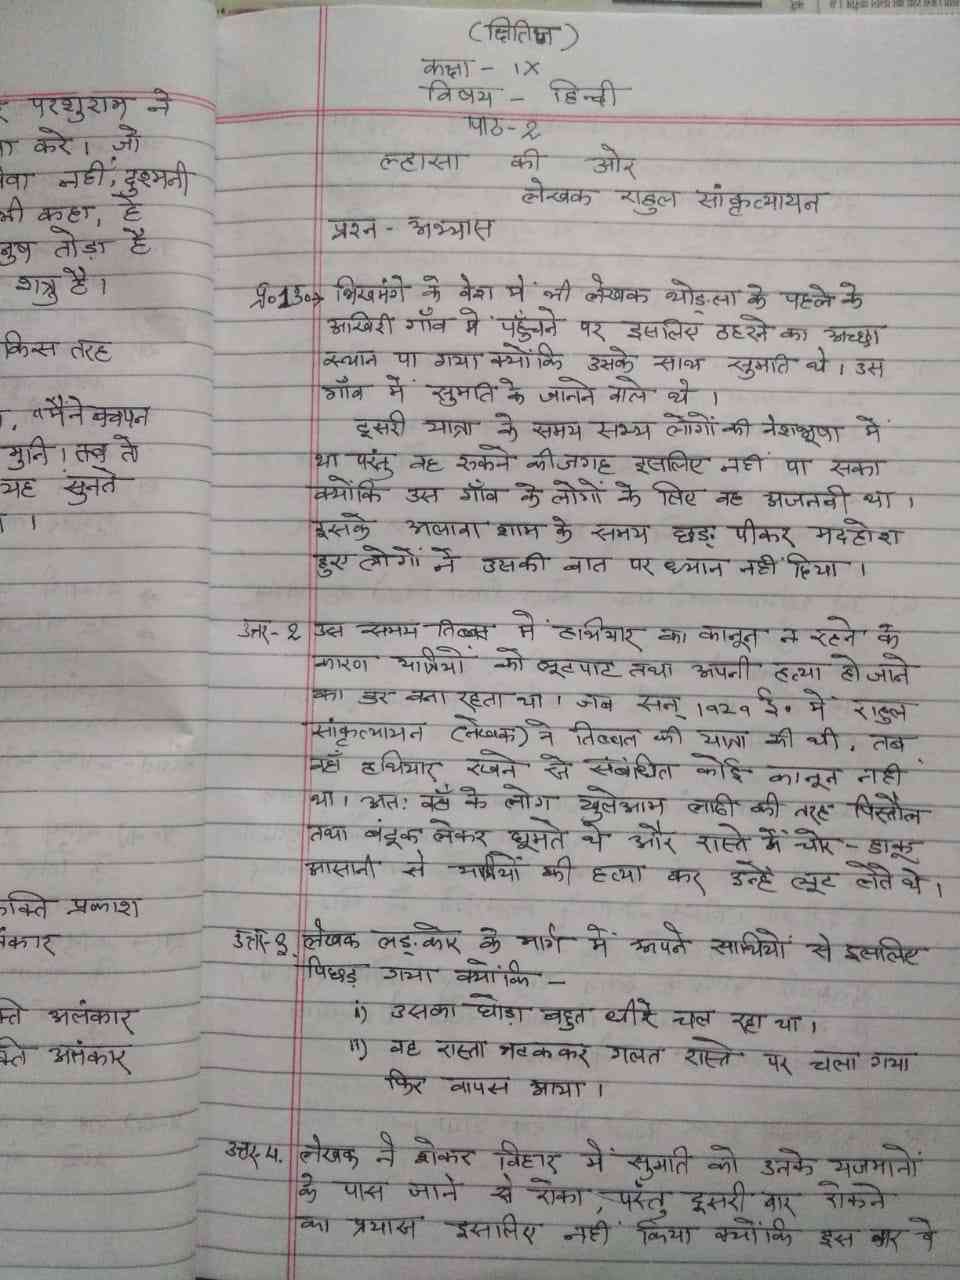 परशुराम ने
करे। जो
नहीं, दुश्मनी
कहा, है
तोड़ा है
शत्रु है।
किस तरह
"मैंने बचपन
मुनि। तब तो
यह सुनते
प्रकाश
अलंकार
(क्षितिज)
कक्षा - IX
विषय - हिन्दी
पाठ-२
ल्हासा की ओर
लेखक राहुल सांकृत्यायन
प्रश्न - अभ्यास
भिखमंगे के वेश में भी लेखक थोङ्ला के पहले के
आखिरी गाँव में पहुँचने पर इसलिए ठहरने का अच्छा
स्थान पा गया क्योंकि उसके साथ सुमति थे। उस
गाँव में सुमति के जानने वाले थे।
दूसरी यात्रा के समय सभ्य लोगों की वेशभूषा में
था परंतु वह रुकने की जगह इसलिए नहीं पा सका
क्योंकि उस गाँव के लोगों के लिए वह अजनबी था।
इसके अलावा शाम के समय छङ् पीकर मदहोश
हुए लोगों ने उसकी बात पर ध्यान नहीं दिया।
उत्तर-२ उस समय तिब्बत में हथियार का कानून न रहने के
कारण यात्रियों को लूटपाट तथा अपनी हत्या हो जाने
का डर बना रहता था। जब सन् १९२९ ई० में राहुल
सांकृत्यायन (लेखक) ने तिब्बत की यात्रा की थी, तब
वहाँ हथियार रखने से संबंधित कोई कानून नहीं
था। अतः वहाँ के लोग खुलेआम लाठी की तरह पिस्तौल
तथा बंदूक लेकर घूमते थे और रास्ते में चोर-डाकू
आसानी से यात्रियों की हत्या कर उन्हें लूट लेते थे।
उत्तर-३. लेखक लङ्कोर के मार्ग में अपने साथियों से इसलिए
पिछड़ गया क्योंकि –
i) उसका घोड़ा बहुत धीरे चल रहा था।
ii) वह रास्ता भटककर गलत रास्ते पर चला गया
फिर वापस आया।
उत्तर-4. लेखक ने शेकर विहार में सुमति को उनके यजमानों
के पास जाने से रोका, परंतु दूसरी बार रोकने
का प्रयास इसलिए नहीं किया क्योंकि इस बार वे